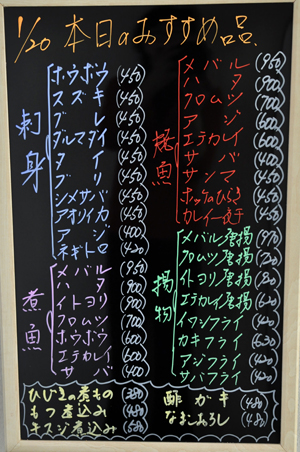 1/20 本日のおすすめ品
刺身
ホウボウ (450)
スズキ (450)
ブレ (450)
ダルマダイ (450)
タイ (450)
ブリ (450)
シメサバ (450)
アオリイカ (450)
アジ (400)
ネギトロ (420)
煮魚
メバル (950)
ハタ (900)
イトヨリ (900)
クロムツ (700)
ホウボウ (600)
エテカレイ (600)
サバ (400)
焼魚
メバル (950)
ハタ (900)
クロムツ (700)
アジ (600)
エテカレイ (600)
サバ (400)
サンマ (450)
ホッケのひらき (450)
カレイ一夜干 (450)
揚物
メバル唐揚 (970)
クロムツ唐揚 (720)
イトヨリ唐揚 (920)
エテカレイ唐揚 (620)
イワシフライ (420)
カキフライ (630)
アジフライ (420)
サバフライ (420)
ひじきの煮もの (380)
もつ煮込み (480)
牛スジ煮込み (580)
酢ガキ (480)
なまこおろし (480)